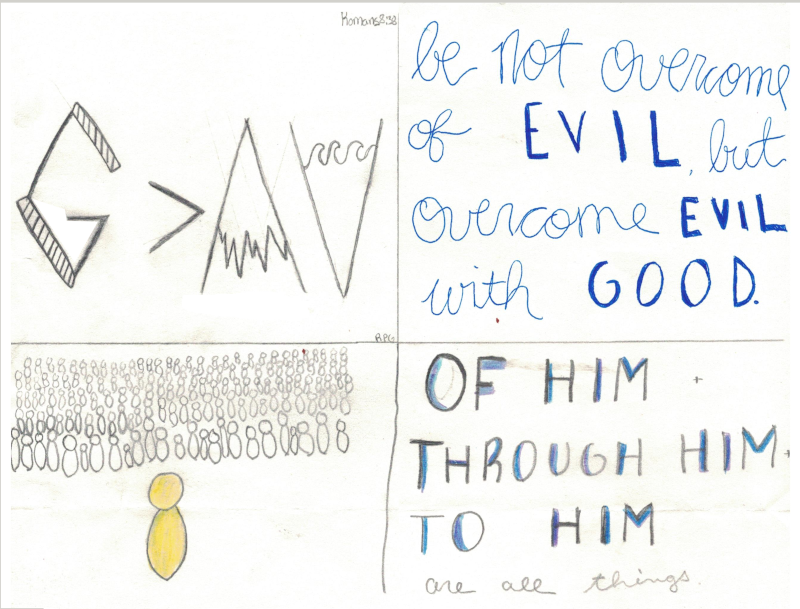 Romans 8:38
G > Λ V
RPG
be not overcome
of EVIL, but
overcome EVIL
with GOOD.
OF HIM +
THROUGH HIM +
TO HIM
are all things.